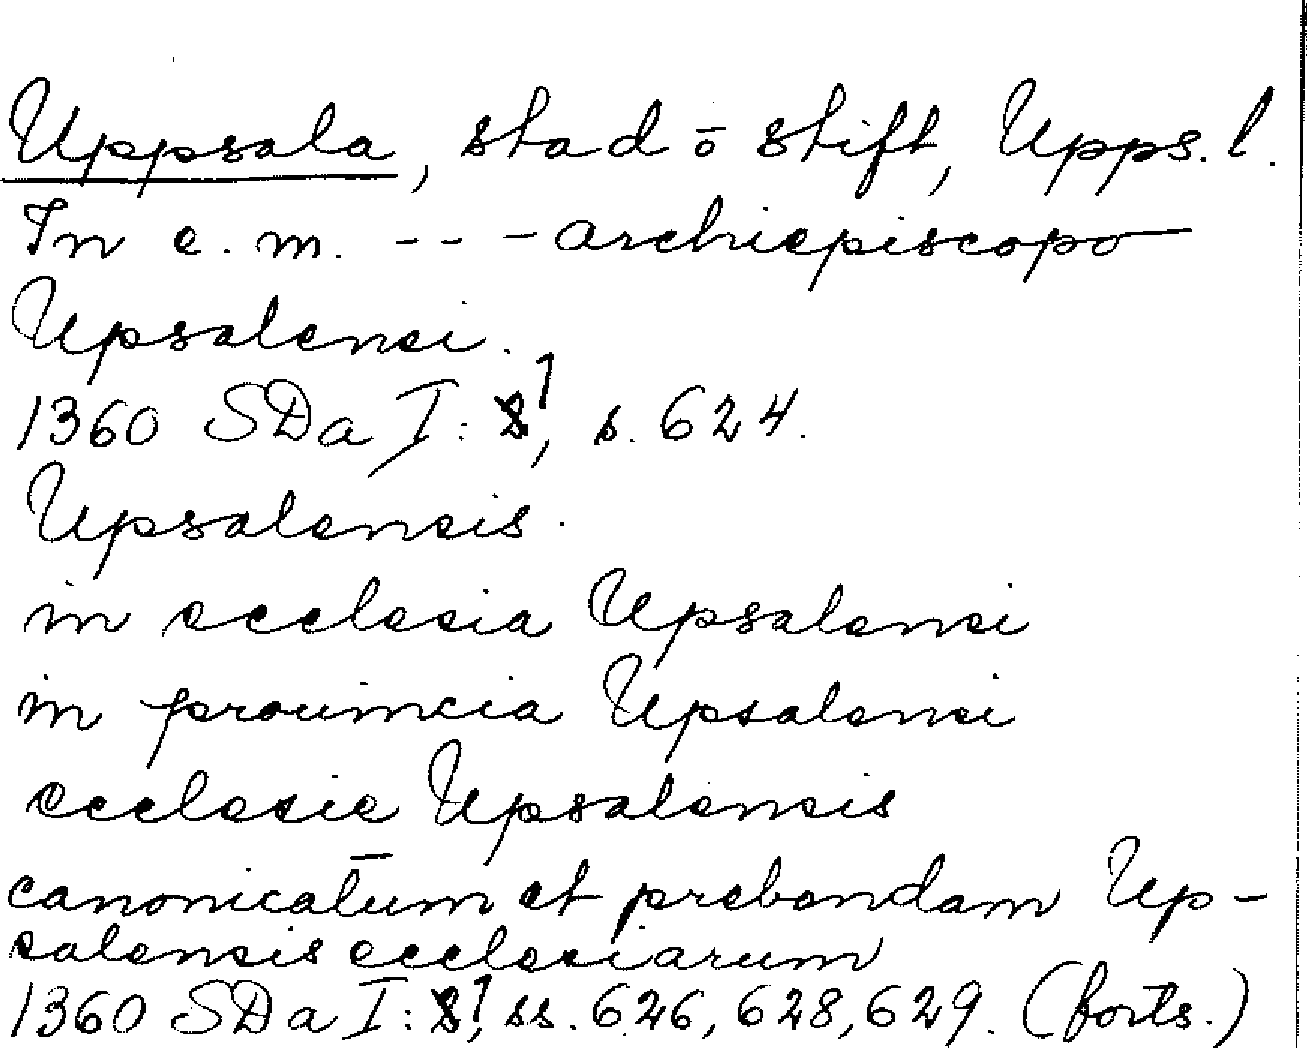 Uppsala, stad o shift, Upps. l.
In e. m. --- archiepiscopo
Upsalensi.
1360 SDa I: 1, s. 624.
Upsalensis.
in ecclesia Upsalensi
in prouincia Upsalensi
ecclesie Upsalensis
canonicatum et prebendam Up-
salensis ecclesiarum
1360 SDa I: 1, ss. 626, 628, 629. (forts.)